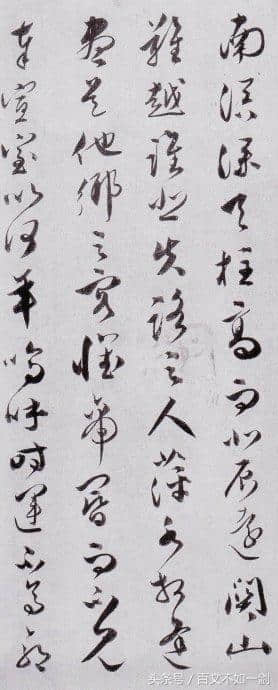 南溟深天柱高而北辰遠關山
難越誰悲失路之人萍水相逢
盡是他鄉之客懷帝閽而不見
奉宣室以何年嗚呼時運不齊命
头条号 / 百文不如一剑